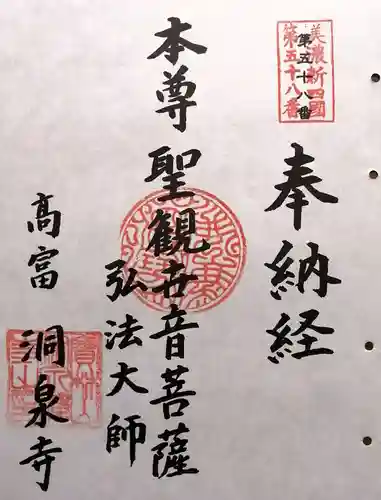 美濃新四國
第五十八番
第五十八番
奉納経
本尊聖観世音菩薩
弘法大師
高富
洞泉寺